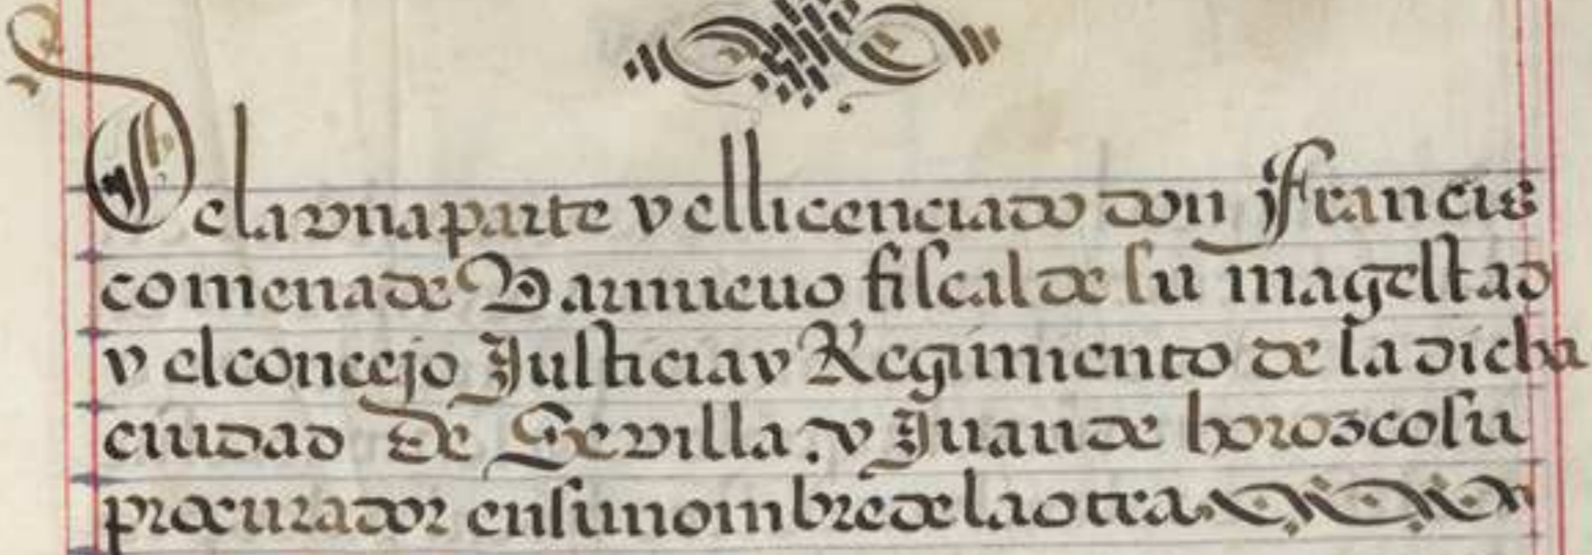 De la vna parte y el licenciado don francis
co mena de Barnueuo fiscal de su magestad
y el concejo Justicia y Regimiento de la dicha
ciudad de Sevilla. y Juan de horozco su
procurador en su nombre de la otra